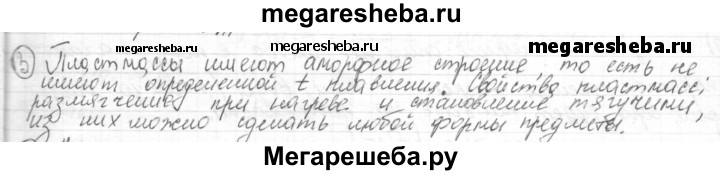 megaresheba.ru
megaresheba.ru megaresheba.ru
3) Пластмассы имеют аморфное строение, то есть не
имеют определенной t плавления. Свойства пластмасс:
размягчение при нагреве и становление тягучими,
из них можно сделать любой формы предметы.
Мегарешеба.ру